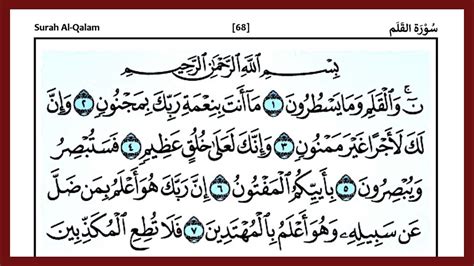 Surah Al-Qalam [68] سُوْرَةُ القَلَم
بِسْمِ اللَّهِ الرَّحْمَٰنِ الرَّحِيمِ
نٓ ۚ وَالْقَلَمِ وَمَا يَسْطُرُونَ ١ مَا أَنتَ بِنِعْمَةِ رَبِّكَ بِمَجْنُونٍ ٢ وَإِنَّ
لَكَ لَأَجْرًا غَيْرَ مَمْنُونٍ ٣ وَإِنَّكَ لَعَلَىٰ خُلُقٍ عَظِيمٍ ٤ فَسَتُبْصِرُ
وَيُبْصِرُونَ ٥ بِأَييِّكُمُ الْمَفْتُونُ ٦ إِنَّ رَبَّكَ هُوَ أَعْلَمُ بِمَن ضَلَّ
عَن سَبِيلِهِ وَهُوَ أَعْلَمُ بِالْمُهْتَدِينَ ٧ فَلَا تُطِعِ الْمُكَذِّبِينَ